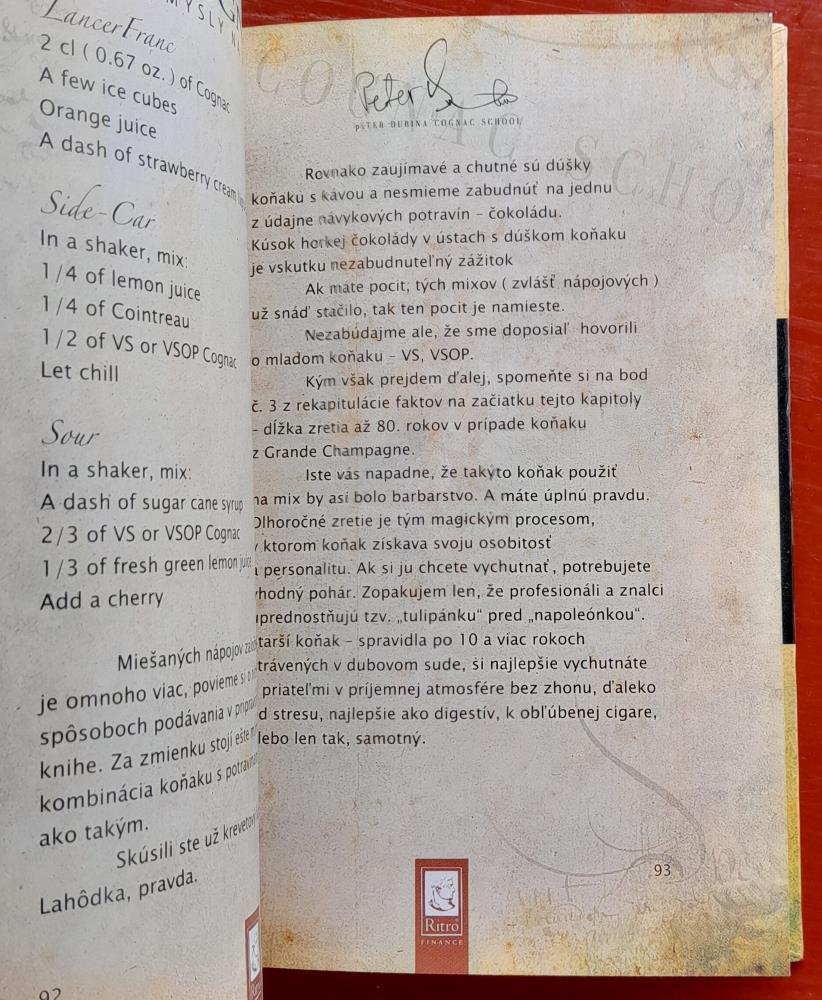 MYSLY N
LancerFranc
2 cl ( 0.67 oz. ) of Cognac
A few ice cubes
Orange juice
A dash of strawberry cream
Side-Car
In a shaker, mix:
1/4 of lemon juice
1/4 of Cointreau
1/2 of VS or VSOP Cognac
Let chill
Sour
In a shaker, mix:
A dash of sugar cane syrup
2/3 of VS or VSOP Cognac
1/3 of fresh green lemon juice
Add a cherry
Miešaných nápojov
je omnoho viac, povieme si o
spôsoboch podávania v
knihe. Za zmienku stojí ešte
kombinácia koňaku s
ako takým.
Skúsili ste už
Lahôdka, pravda.
92
COGNAC SCHOOL
Peter
PETER DURINA COGNAC SCHOOL
Rovnako zaujímavé a chutné sú dúšky
koňaku s kávou a nesmieme zabudnúť na jednu
z údajne návykových potravín – čokoládu.
Kúsok horkej čokolády v ústach s dúškom koňaku
je vskutku nezabudnuteľný zážitok
Ak máte pocit, tých mixov ( zvlášť nápojových )
už snáď stačilo, tak ten pocit je namieste.
Nezabúdajme ale, že sme doposiaľ hovorili
o mladom koňaku – VS, VSOP.
Kým však prejdem ďalej, spomeňte si na bod
č. 3 z rekapitulácie faktov na začiatku tejto kapitoly
– dĺžka zretia až 80. rokov v prípade koňaku
z Grande Champagne.
Iste vás napadne, že takýto koňak použiť
na mix by asi bolo barbarstvo. A máte úplnú pravdu.
Dlhoročné zretie je tým magickým procesom,
v ktorom koňak získava svoju osobitosť
a personalitu. Ak si ju chcete vychutnať, potrebujete
vhodný pohár. Zopakujem len, že profesionáli a znalci
uprednostňujú tzv. „tulipánku" pred „napoleónkou".
tarší koňak – spravidla po 10 a viac rokoch
trávených v dubovom sude, si najlepšie vychutnáte
priateľmi v príjemnej atmosfére bez zhonu, ďaleko
d stresu, najlepšie ako digestív, k obľúbenej cigare,
lebo len tak, samotný.
93
Ritro
FINANCE